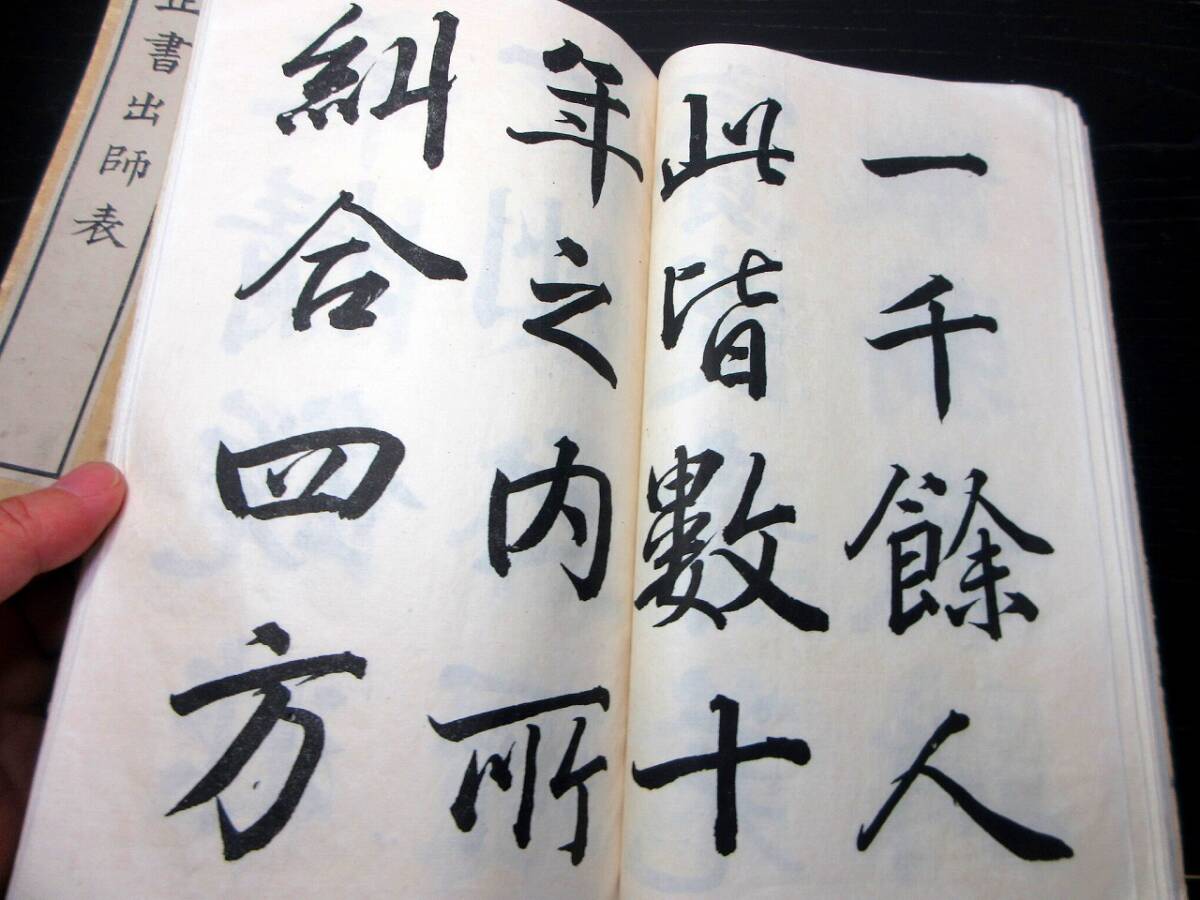 一千餘人
此皆數十
年之内所
糾合四方
書出師表